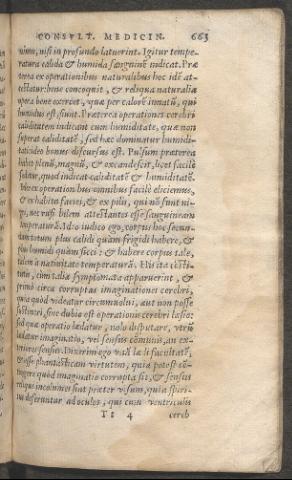 CONSVLT. MEDICIN. 663
nium, nisi in profundo latuerint. Igitur tempe-
ratura calida & humida sanguinē indicat. Præ
terea ex operationibus naturalibus hoc idē at-
testatur: bene concoquit, & reliqua naturalia
opera bene exercet, quæ per calorē innatū, qui
humidus est, fiunt. Præterea operationes cerebri
caliditatem indicant cum humiditate, quæ non
superat caliditatē, sed hæc dominatur humidi-
tati: ideo bonus discursus est. Pulsum præterea
habet plenū, magnū, & excandescit, licet facile
sedatur, quod indicat caliditatē & humiditatē.
Vnde ex operationibus omnibus facile eliciemus,
& ex habitu faciei, & ex pilis, qui nō sunt ni-
gri, nec rufi bilem attestantes esse sanguineam
temperaturā. Ideo iudico ego, corpus hoc secun-
dum totum plus calidi quàm frigidi habere, &
plus humidi quàm sicci: & habere corpus tale,
talem à natiuitate temperaturā. Ei ita cōsti-
tuto, cùm talia symptomata apparuerint, &
primò circa corruptas imaginationes cerebri,
quia quòd videatur circumuolui, aut non posse
sustineri, sine dubio est operationis cerebri læsio:
sed quæ operatio lædatur, nolo disputare, vtrū
lædatur imaginatio, vel sensus cōmunis, an ex-
terior sensus. Dixerim ego
esse phantasticam virtutem, quia potest cō-
tingere quòd imaginatio corrupta sit, & sensus
reliqui incolumes sint præter visum, quia spiri-
tus deferuntur ad oculos, qui cùm ventriculis
Tt 4 cereb